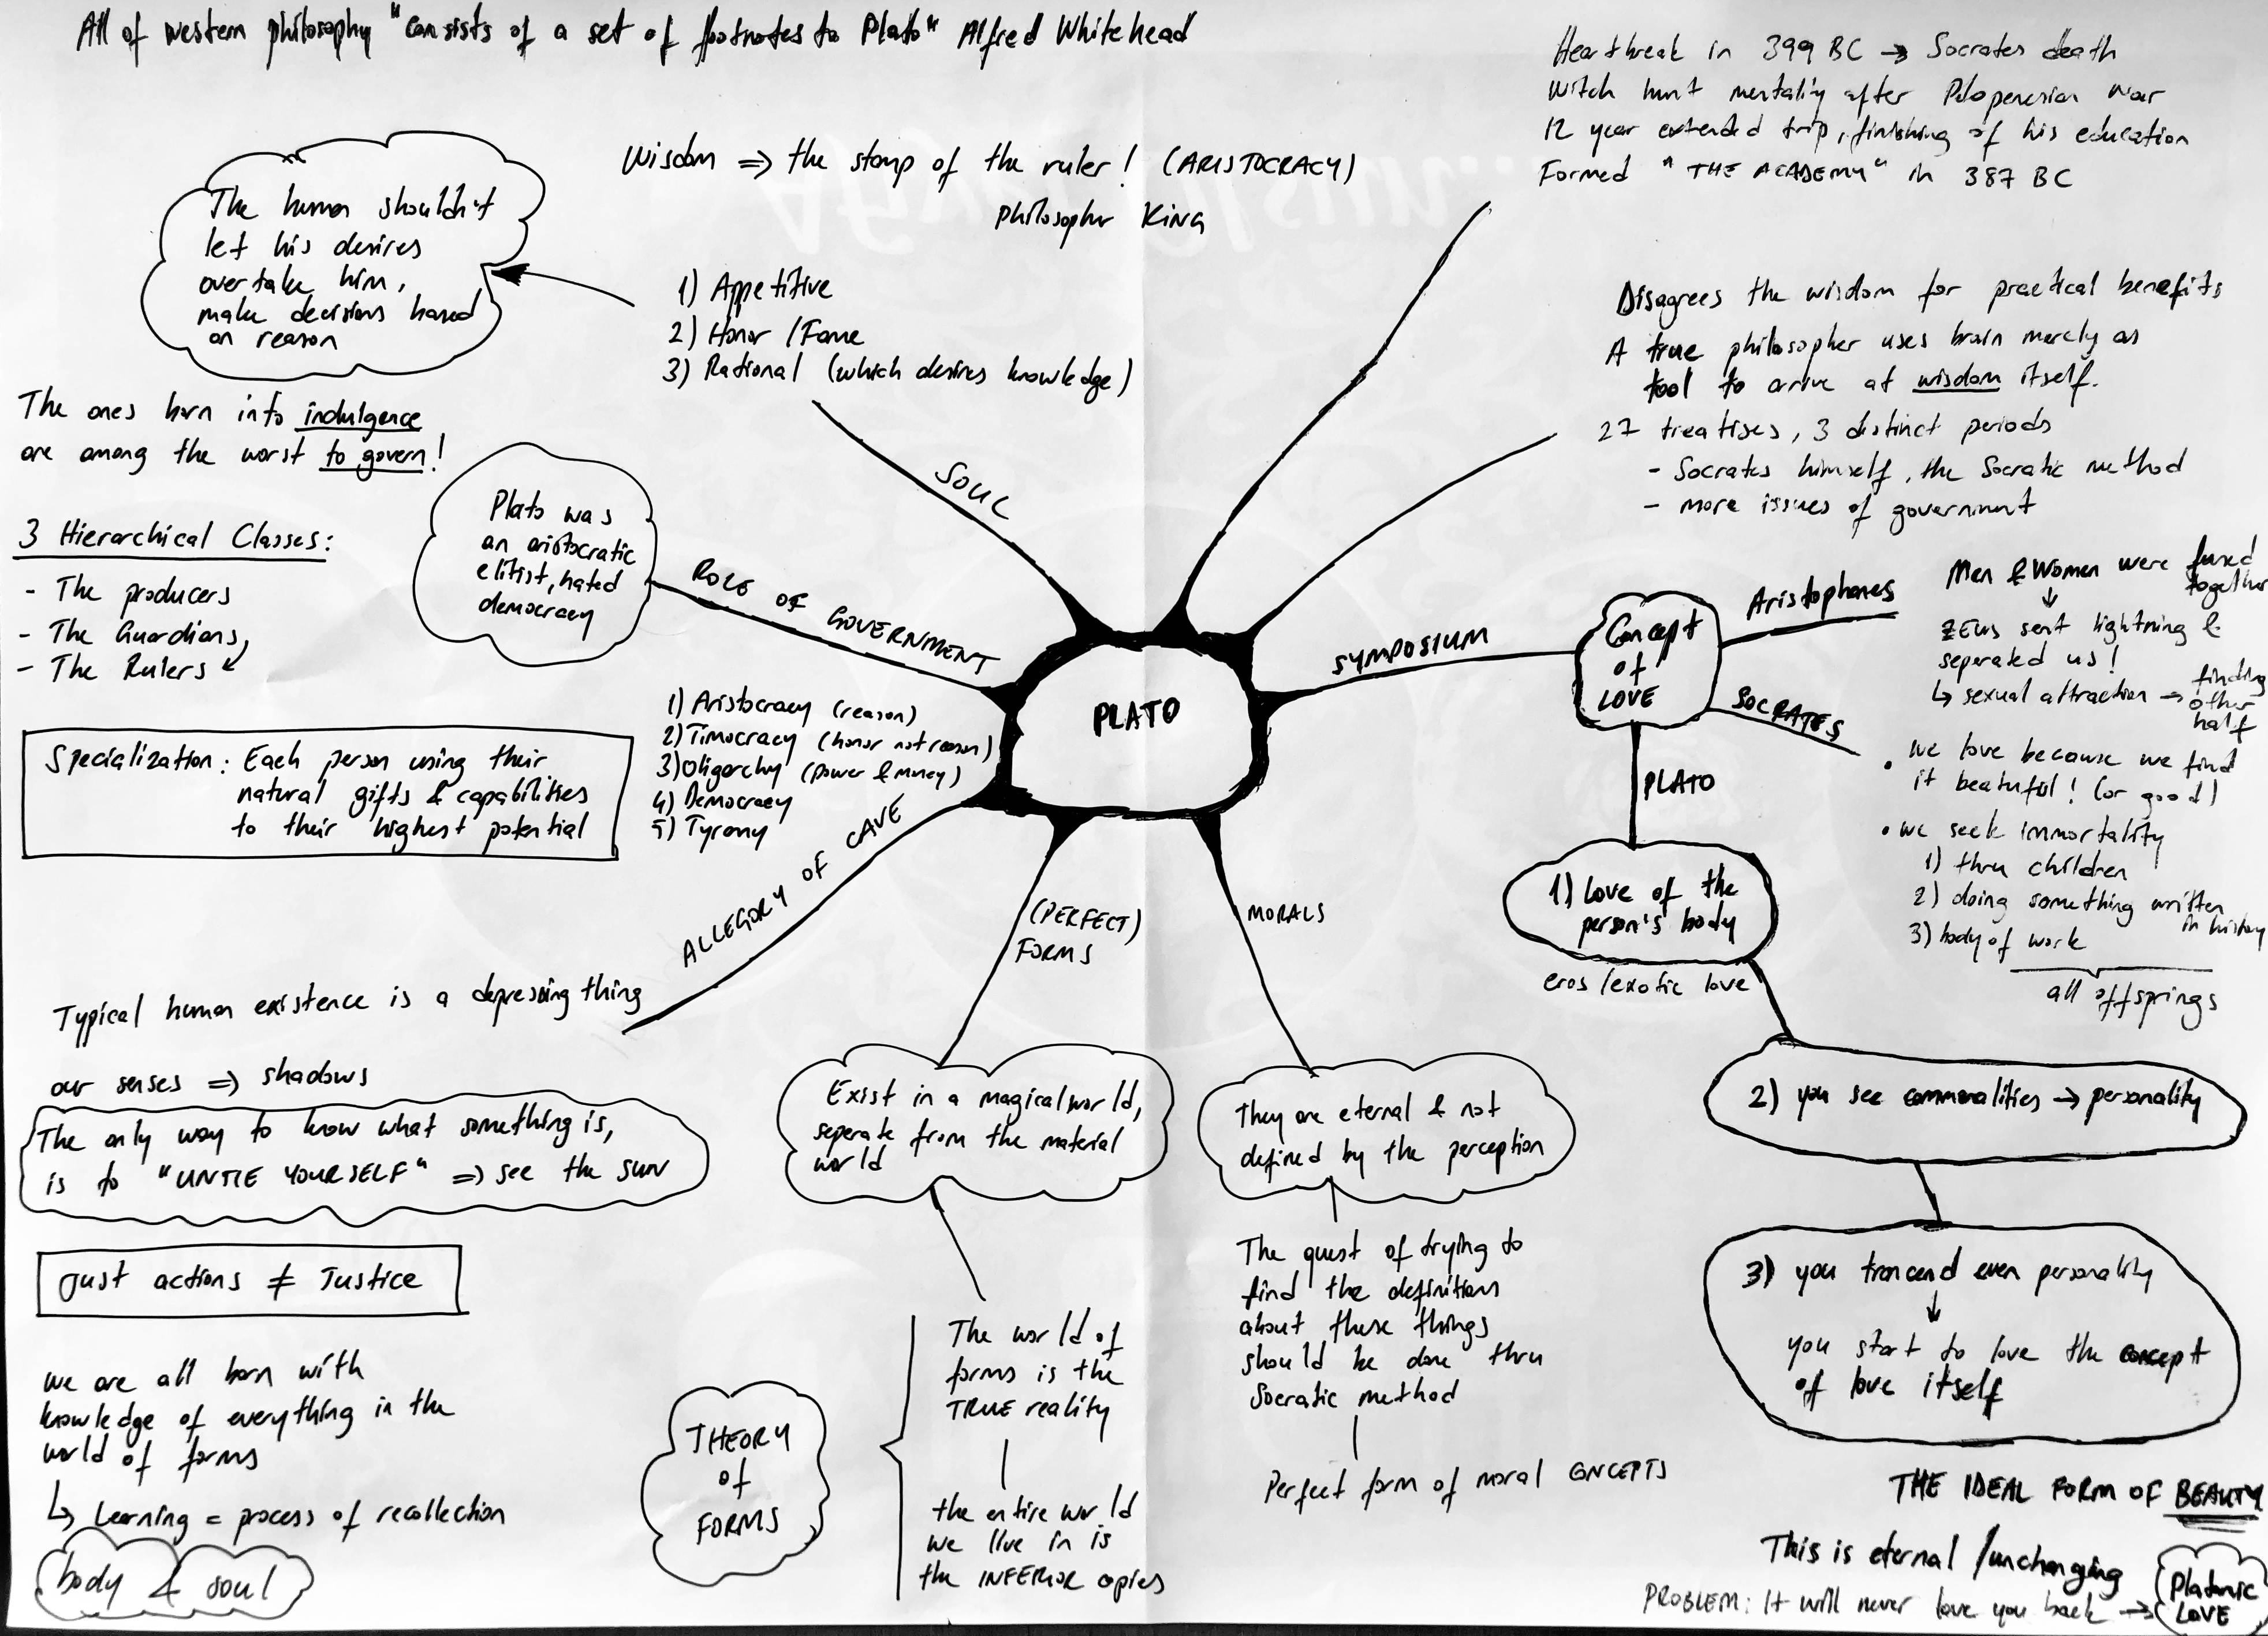 All of western philosophy "consists of a set of footnotes to Plato" Alfred Whitehead
Heartbreak in 399 BC → Socrates death
Witch hunt mentality after Pelopenesian war
12 year extended trip, finishing of his education
Formed "THE ACADEMY" in 387 BC
Wisdom ⇒ the stamp of the ruler! (ARISTOCRACY)
Philosopher King
The human shouldn't
let his desires
overtake him,
make decisions based
on reason
1) Appetitive
2) Honor / Fame
3) Rational (which desires knowledge)
SOUL
Disagrees the wisdom for practical benefits
A true philosopher uses brain merely as
tool to arrive at wisdom itself.
27 treatises, 3 distinct periods
- Socrates himself, the Socratic method
- more issues of government
The ones born into indulgence
are among the worst to govern!
Plato was
an aristocratic
elitist, hated
democracy
ROLE OF GOVERNMENT
3 Hierarchical Classes:
- The producers
- The Guardians
- The Rulers
Specialization: Each person using their
natural gifts & capabilities
to their highest potential
1) Aristocracy (reason)
2) Timocracy (honor not reason)
3) Oligarchy (power & money)
4) Democracy
5) Tyrany
PLATO
SYMPOSIUM
Concept
of
LOVE
Aristophanes
Men & Women were fused
together
↓
ZEUS sent lightning &
seperated us!
↳ sexual attraction → finding
other
half
SOCRATES
• we love because we find
it beatuful! (or good)
• we seek immortality
1) thru children
2) doing something written
in history
3) body of work
all offsprings
PLATO
1) Love of the
person's body
eros / exotic love
2) you see commonalities → personality
3) you trancend even personality
↓
you start to love the concept
of love itself
THE IDEAL FORM OF BEAUTY
This is eternal / unchanging
PROBLEM: It will never love you back →
Platonic
LOVE
ALLEGORY OF CAVE
Typical human existence is a depressing thing
our senses ⇒ shadows
The only way to know what something is,
is to "UNTIE YOURSELF" ⇒ see the SUN
Just actions ≠ Justice
we are all born with
knowledge of everything in the
world of forms
↳ Learning = process of recollection
body & soul
(PERFECT)
FORMS
Exist in a magical world,
seperate from the material
world
THEORY
of
FORMS
The world of
forms is the
TRUE reality
the entire world
we live in is
the INFERIOR copies
MORALS
They are eternal & not
defined by the perception
The quest of trying to
find the definitions
about these things
should be done thru
Socratic method
Perfect form of moral CONCEPTS